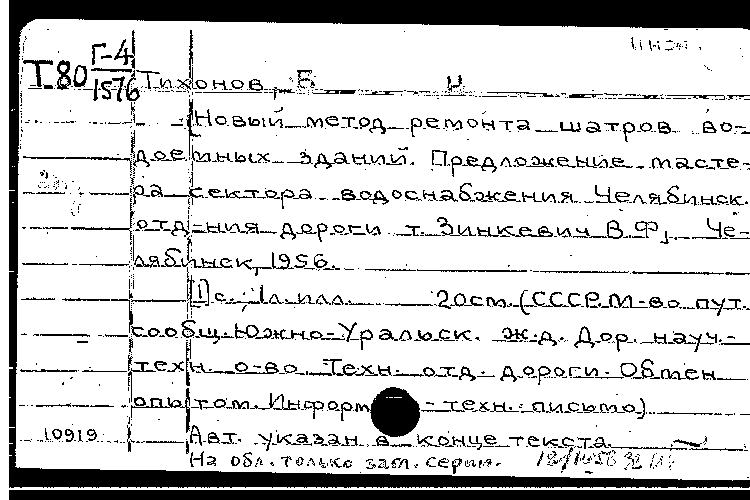 Т.80 Г-4
1576
Тихонов, Б Н
[Новый метод ремонта шатров во-
доемных зданий. Предложение масте-
ра сектора водоснабжения Челябинск.
отд-ния дороги т. Зинкевич В.Ф], Че-
лябинск, 1956.
[1] с., 1 л. илл. 20см. (СССР. М-во пут.
сообщ. Южно-Уральск. ж.д. Дор. науч.-
техн. о-во. Техн. отд. дороги. Обмен
опытом. Информ -техн. письмо)
10919 Авт. указан в конце текста.
На обл. только заг. серии.